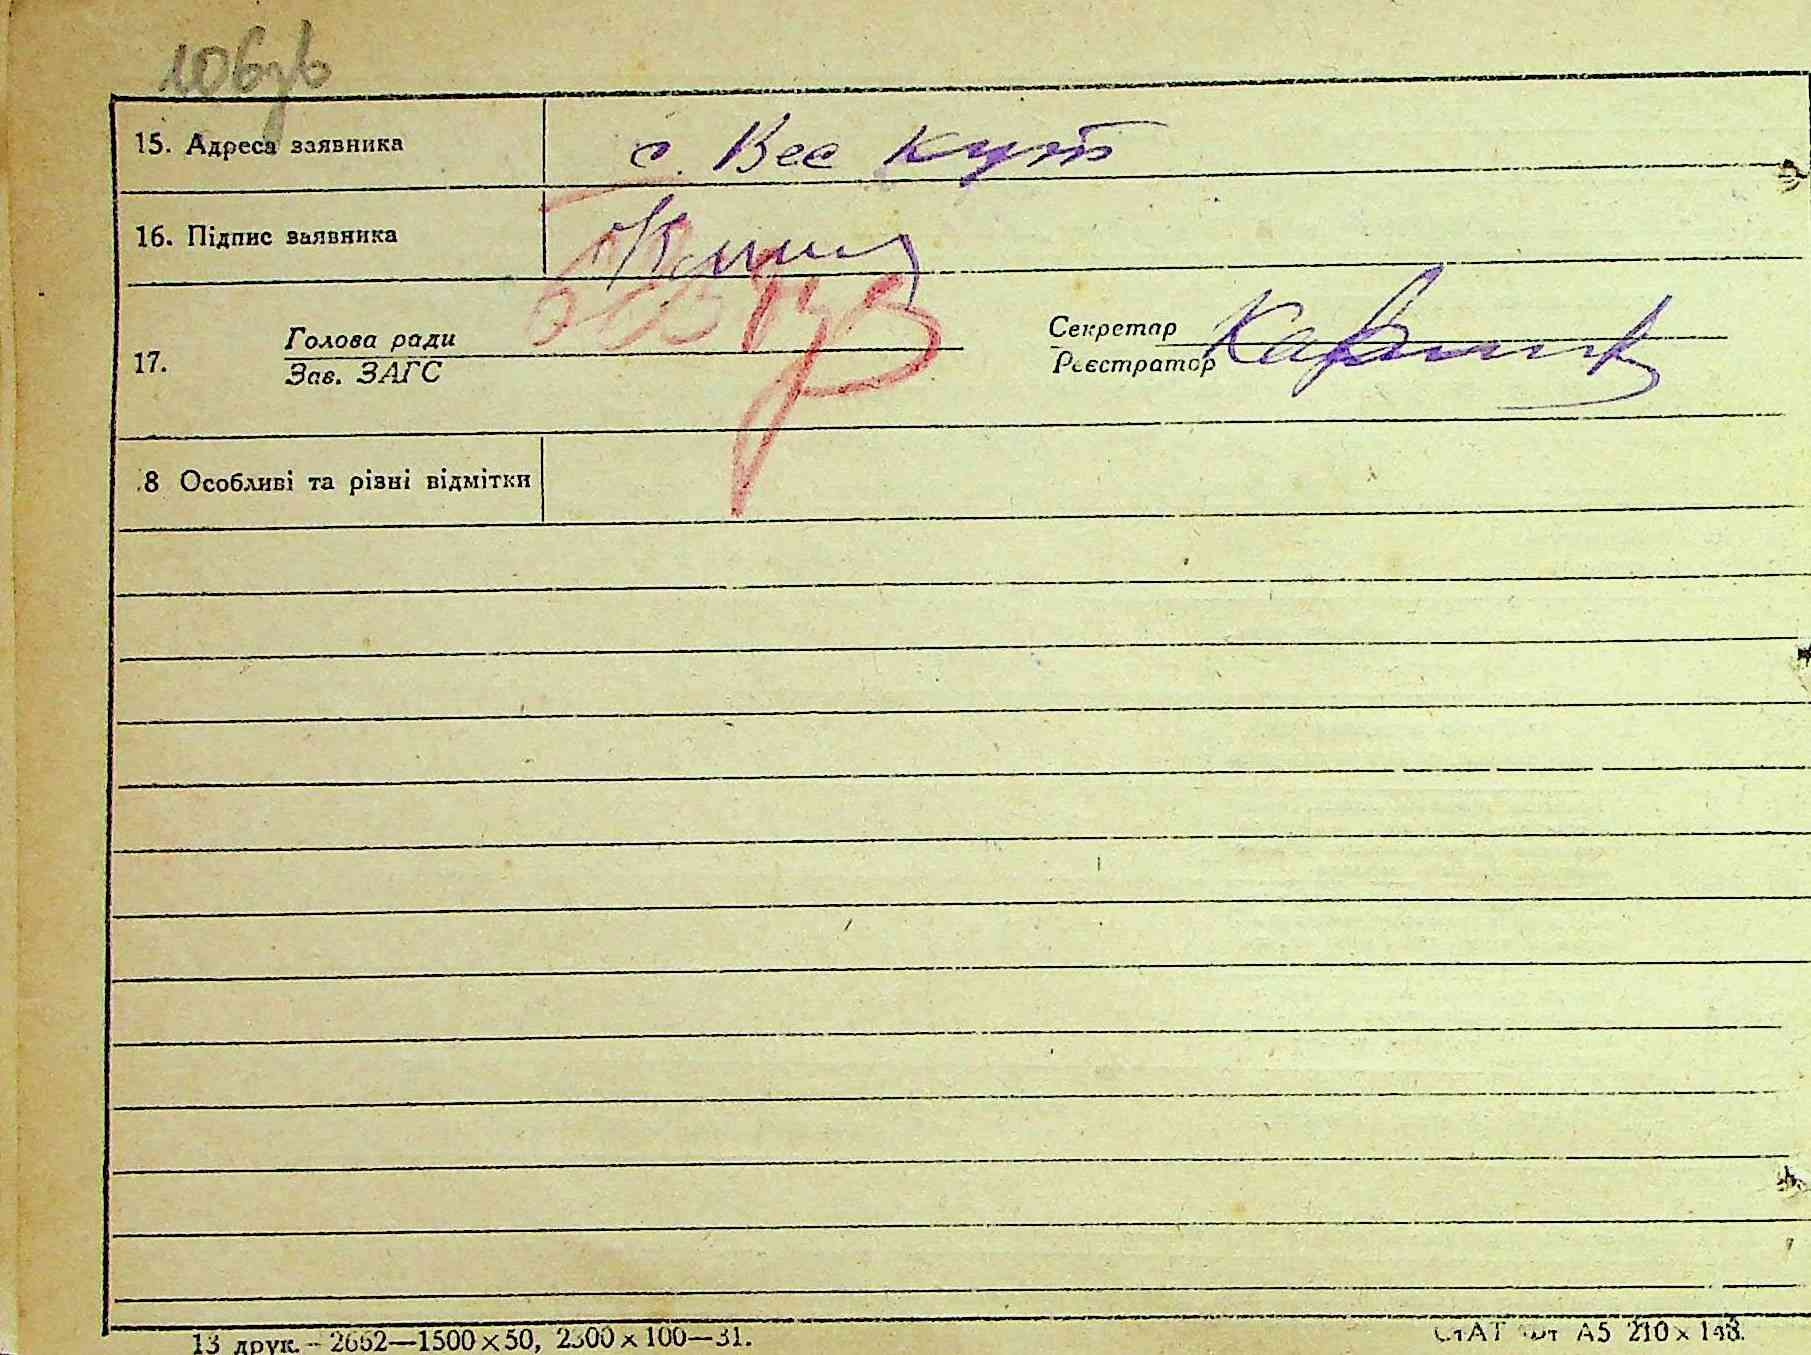 106зв
15. Адреса заявника с. Вес Кут
16. Підпис заявника
Голова ради Секретар
17.
Зав. ЗАГС Реєстратор
8 Особливі та різні відмітки
13 друк. – 2662—1500×50, 2300×100—31. СтАТ фт А5 210×148.